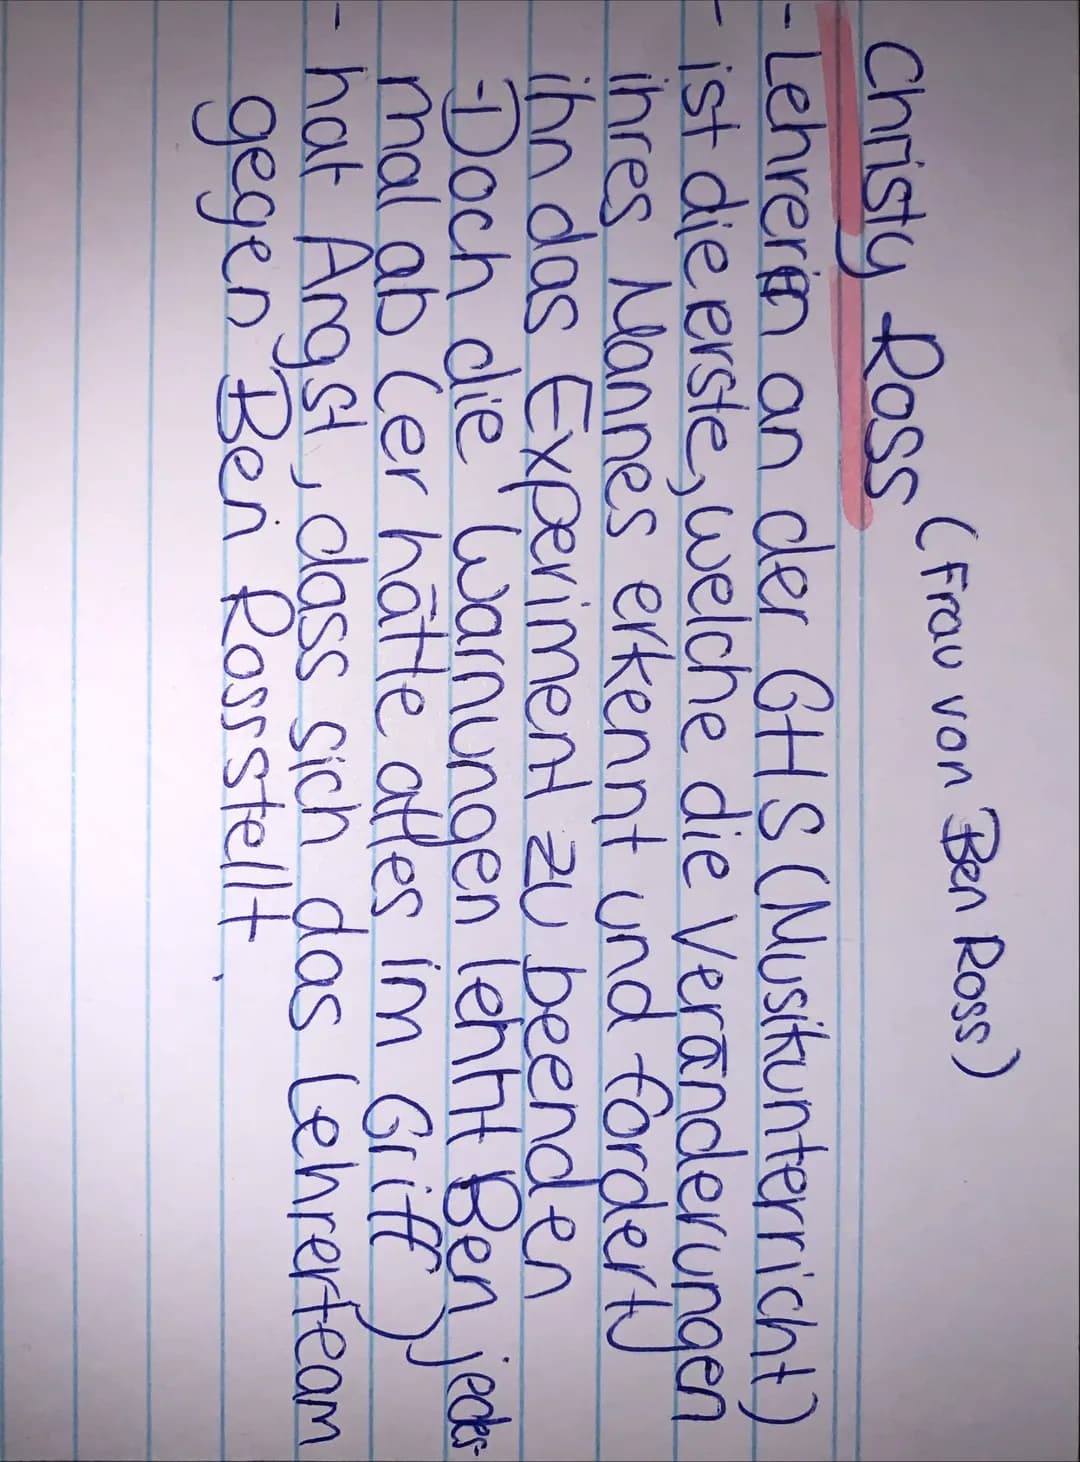 Christy Ross (Frau von Ben Ross)
- Lehrerin an der GHS (Musikunterricht)
- ist die erste, welche die Veränderungen
ihres Mannes erkennt und fordert
ihn das Experiment zu beenden
- Doch die Warnungen lehnt Ben jedes-
mal ab (er hätte alles im Griff)
- hat Angst, dass sich das Lehrerteam
gegen Ben Ross stellt.